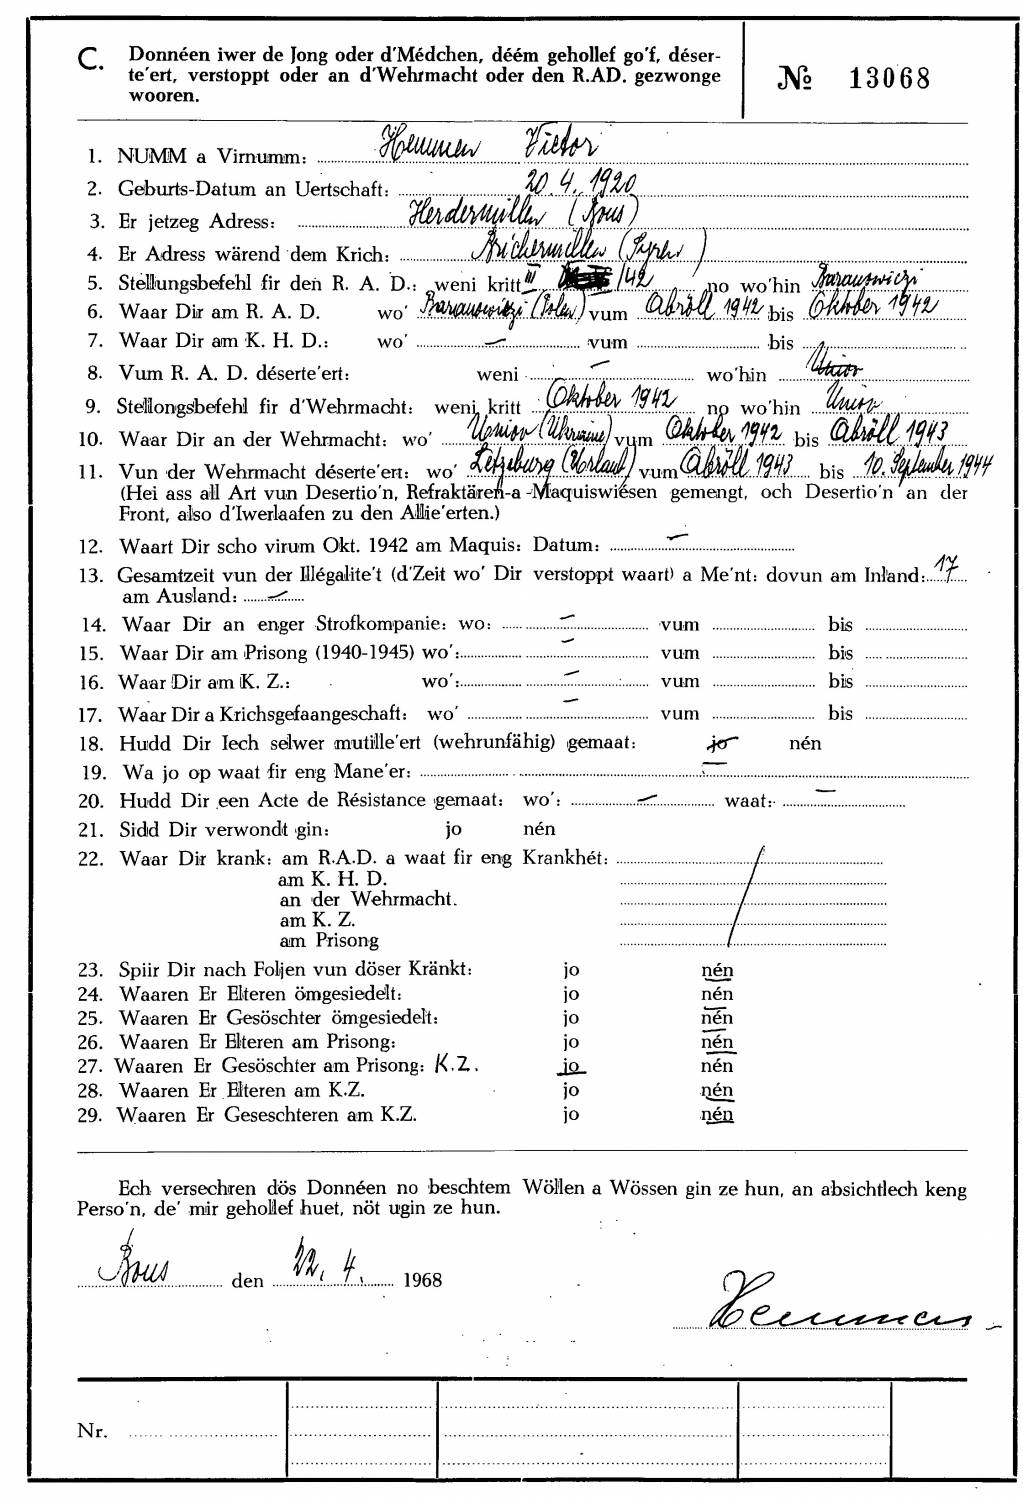 C. Donnéen iwer de Jong oder d'Médchen, déém gehollef go'f, déser-
te'ert, verstoppt oder an d'Wehrmacht oder den R.AD. gezwonge
wooren.
№ 13068
1. NUMM a Virnumm: Hemmen Victor
2. Geburts-Datum an Uertschaft: 20. 4. 1920
3. Er jetzeg Adress: Herdermillen (Bous)
4. Er Adress wärend dem Krich: (
5. Stellungsbefehl fir den R. A. D.: weni kritt III /42 no wo'hin Baranowiczi
6. Waar Dir am R. A. D. wo' Baranowiczi (Polen) vum Abröll 1942 bis Oktober 1942
7. Waar Dir am K. H. D.: wo' — vum bis
8. Vum R. A. D. déserte'ert: weni — wo'hin Union
9. Stellongsbefehl fir d'Wehrmacht: weni kritt Oktober 1942 no wo'hin Union
10. Waar Dir an der Wehrmacht: wo' Union (Ukraine) vum Oktober 1942 bis Abröll 1943
11. Vun der Wehrmacht déserte'ert: wo' Letzeburg (Urlaub) vum Abröll 1943 bis 10. September 1944
(Hei ass all Art vun Desertio'n, Refraktären-a -Maquiswiésen gemengt, och Desertio'n an der
Front, also d'Iwerlaafen zu den Allie'erten.)
12. Waart Dir scho virum Okt. 1942 am Maquis: Datum: —
13. Gesamtzeit vun der Illégalite't (d'Zeit wo' Dir verstoppt waart) a Me'nt: dovun am Inland: 17
am Ausland: —
14. Waar Dir an enger Strofkompanie: wo: — vum bis
15. Waar Dir am Prisong (1940-1945) wo': — vum bis
16. Waar Dir am K. Z.: wo': — vum bis
17. Waar Dir a Krichsgefaangeschaft: wo' — vum bis
18. Hudd Dir Iech selwer mutille'ert (wehrunfähig) gemaat: jo nén
19. Wa jo op waat fir eng Mane'er: —
20. Hudd Dir een Acte de Résistance gemaat: wo': — waat: —
21. Sidd Dir verwondt gin: jo nén
22. Waar Dir krank: am R.A.D. a waat fir eng Krankhét:
am K. H. D.
an der Wehrmacht.
am K. Z.
am Prisong
23. Spiir Dir nach Foljen vun döser Kränkt: jo nén
24. Waaren Er Elteren ömgesiedelt: jo nén
25. Waaren Er Gesöschter ömgesiedelt: jo nén
26. Waaren Er Elteren am Prisong: jo nén
27. Waaren Er Gesöschter am Prisong: K.Z. jo nén
28. Waaren Er Elteren am K.Z. jo nén
29. Waaren Er Geseschteren am K.Z. jo nén
Ech versechren dös Donnéen no beschtem Wöllen a Wössen gin ze hun, an absichtlech keng
Perso'n, de' mir gehollef huet, nöt ugin ze hun.
Bous den 22. 4. 1968
Hemmen
Nr.